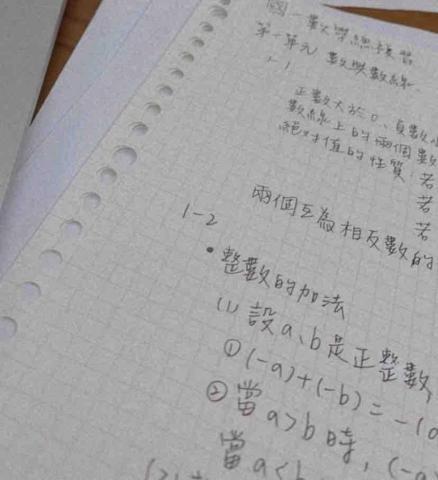 國一數學總複習
第一單元 數與數線
1-1
正數大於0、負數小
數線上的兩個數
絕對值的性質：若
若
若
兩個互為相反數的
1-2
• 整數的加法
(1) 設a、b是正整數,
① (-a)+(-b) = -(a
② 當a>b時, (-a
當a<b
(2)